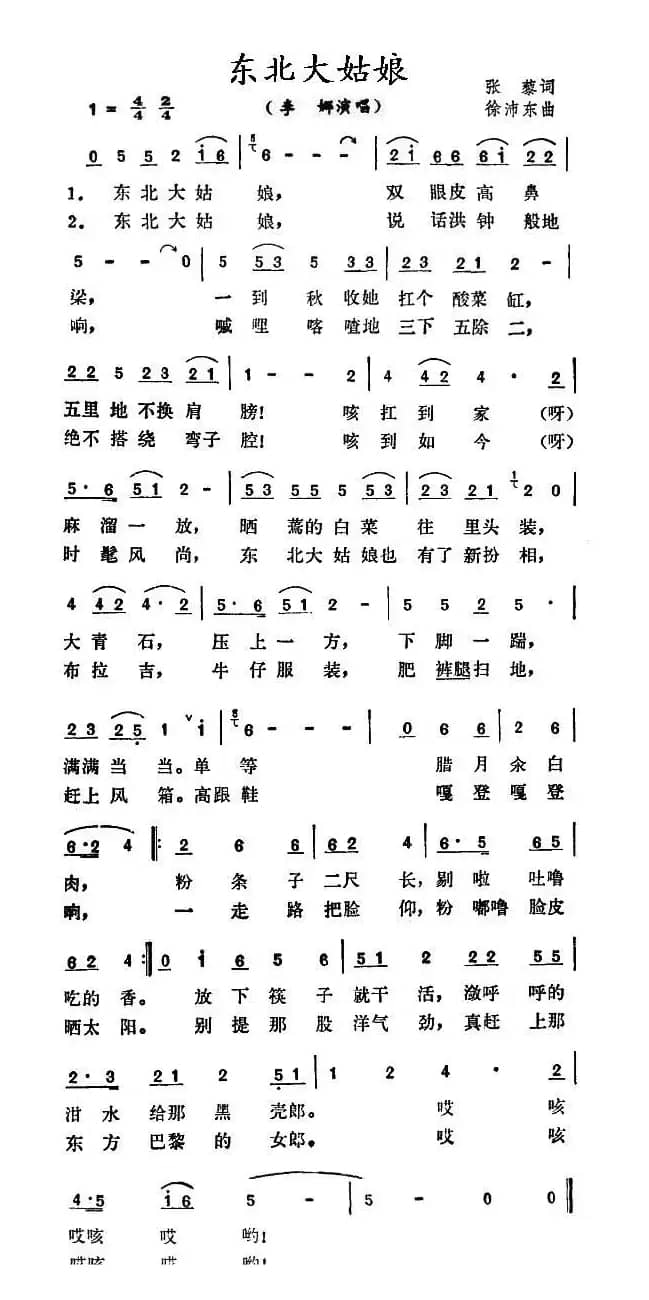 东北大姑娘
张藜词
1= 4/4 2/4 (李娜演唱) 徐沛东曲
0 5 5 2 i6 | 6 - - - | 2i 66 6i 22 |
1. 东北大姑 娘, 双 眼皮高 鼻
2. 东北大姑 娘, 说 话洪钟 般地
5 - - 0 | 5 53 5 33 | 23 21 2 - |
梁, 一到 秋收她 扛个 酸菜缸,
响, 喊哩 喀喳地 三下 五除二,
22 5 23 21 | 1 - - 2 | 4 42 4 · 2 |
五里地不换肩 膀! 咳 扛到 家 (呀)
绝不搭绕 弯子 腔! 咳 到如 今 (呀)
5·6 51 2 - | 53 55 5 53 | 23 21 2 0 |
麻溜一放, 晒蔫的白菜 往 里头装,
时髦风尚, 东 北大姑娘也 有了新扮相,
4 42 4·2 | 5·6 51 2 - | 5 5 2 5 · |
大青石, 压上一方, 下脚一踹,
布拉吉, 牛仔服装, 肥裤腿扫地,
23 25 1 i | 6 - - | 0 6 6 2 6 |
满满当 当。单等 腊月汆白
赶上风 箱。高跟鞋 嘎登嘎登
6·2 4 |: 2 6 6 6 | 62 4 | 6·5 65 |
肉, 粉条子二尺 长, 剔啦 吐噜
响, 一走路把脸 仰, 粉嘟噜 脸皮
62 4 :| 0 i 6 5 6 | 51 2 22 55 |
吃的香。 放下筷子就干 活, 潋呼 呼的
晒太阳。 别提那股洋气 劲, 真赶 上那
2·3 21 2 51 | 1 2 4 · 2 |
泔水给那黑 壳郎。 哎 咳
东方巴黎的 女郎。 哎 咳
4·5 i6 5 - | 5 - 0 0 ‖
哎咳 哎 哟!
哎咳 哎 哟!